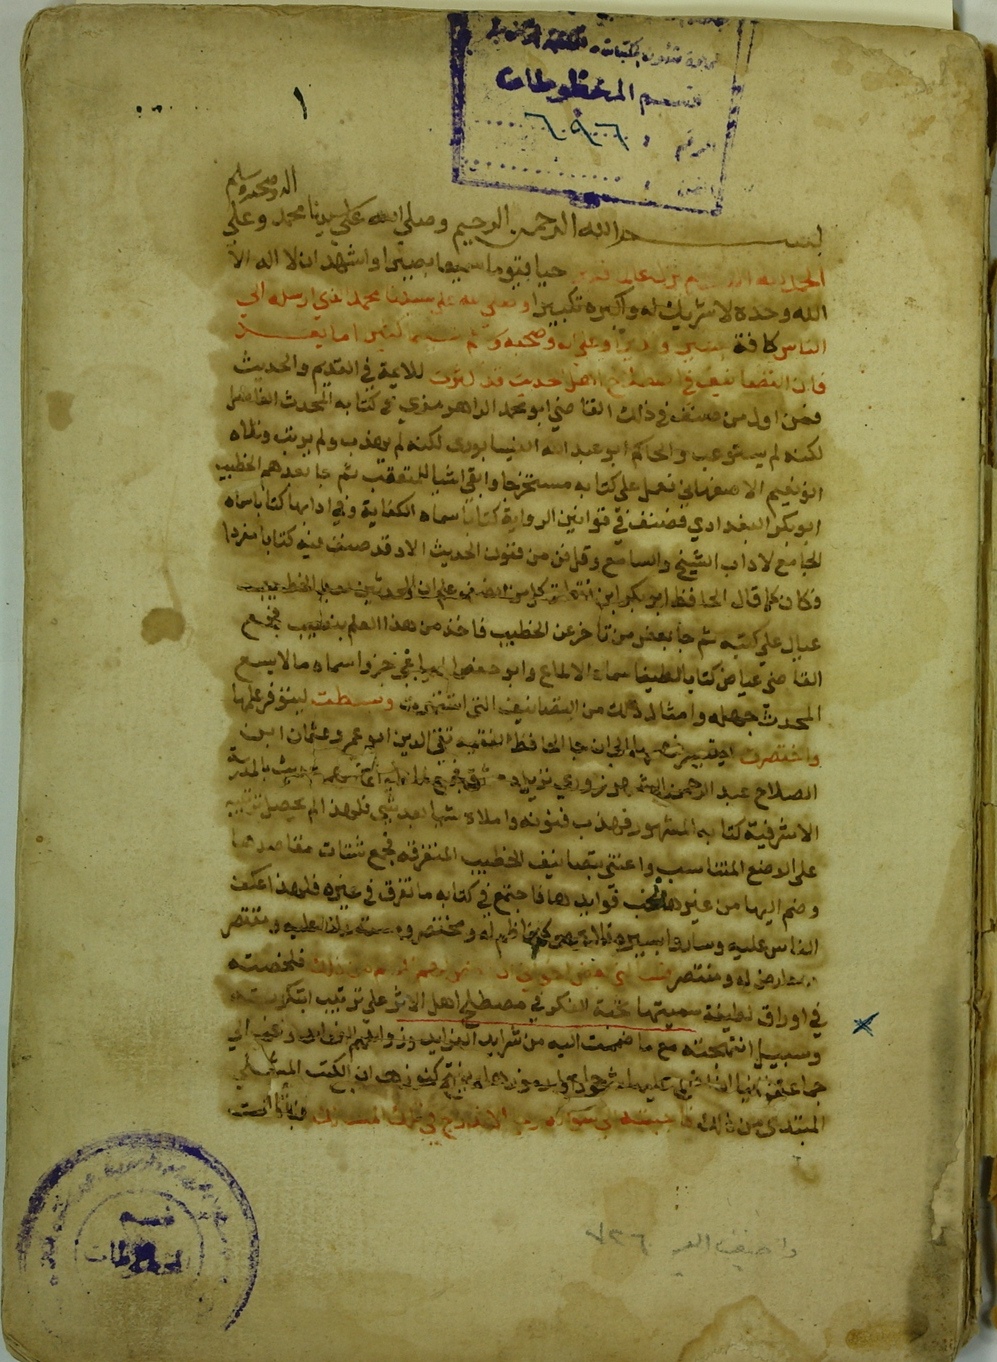 قسم المخطوطات
الرقم : ٦٠٩٦
١
اله وصحبه وسلم
بسم الله الرحمن الرحيم وصلى الله على سيدنا محمد وعلى
الحمد لله حيا قيوما سميعا بصيرا واشهد ان لا اله الا
الله وحده لا شريك له واكبره تكبيرا وصلى الله على سيدنا محمد الذي ارسله الى
الناس كافة وعلى اله وصحبه وسلم كثيرا اما بعد
فان التصانيف في اصطلاح اهل الحديث قد كثرت للائمة في القديم والحديث
فمن اول من صنف في ذلك القاضي ابو محمد الرامهرمزي في كتابه المحدث الفاصل
لكنه لم يستوعب والحاكم ابو عبد الله النيسابوري لكنه لم يهذب ولم يرتب وتلاه
ابو نعيم الاصفهاني فعمل على كتابه مستخرجا وابقى اشيا للمتعقب ثم جا بعدهم الخطيب
ابو بكر البغدادي فصنف في قوانين الرواية كتابا سماه الكفاية وفي ادابها كتابا سماه
الجامع لاداب الشيخ والسامع وقل فن من فنون الحديث الا وقد صنف فيه كتابا مفردا
وكان كما قال الحافظ ابو بكر ابن نقطة كل من انصف علم ان المحدثين بعد الخطيب
عيال على كتبه ثم جا بعض من تاخر عن الخطيب فاخذ من هذا العلم بنصيب فجمع
القاضي عياض كتابا لطيفا سماه الالماع وابو حفص جزوا سماه ما لا يسع
المحدث جهله وامثال ذلك من التصانيف التي اشتهرت وبسطت ليتوفر علمها
واختصرت ليتيسر فهمها الى ان جا الحافظ الفقيه تقي الدين ابو عمرو عثمان ابن
الصلاح عبد الرحمن الشهرزوري نزيل دمشق فجمع لما ولي تدريس الحديث بالمدرسة
الاشرفية كتابه المشهور فهذب فنونه واملاه شيا بعد شي فلهذا لم يحصل ترتيبه
على الوضع المتناسب واعتنى بتصانيف الخطيب المتفرقة فجمع شتات مقاصدها
وضم اليها من غيرها نخب فوايدها فاجتمع في كتابه ما تفرق في غيره فلهذا عكف
الناس عليه وساروا بسيره فلا يحصى كم ناظم له ومختصر ومستدرك عليه ومقتصر
ومعارض له ومنتصر فسالني بعض الاخوان ان الخص لهم المهم من ذلك فلخصته
في اوراق لطيفة سميتها نخبة الفكر في مصطلح اهل الاثر على ترتيب ابتكرته
وسبيل انتهجته مع ما ضممت اليه من شوارد الفرايد وزوايد الفوايد فرغب الي
جماعة ثانيا ان اضع عليها شرحا يحل رموزها ويفتح كنوزها
المبتدي من ذلك فاجبته الى سواله رجا الاندراج في تلك المسالك فبالغت
قسم
المخطوطات